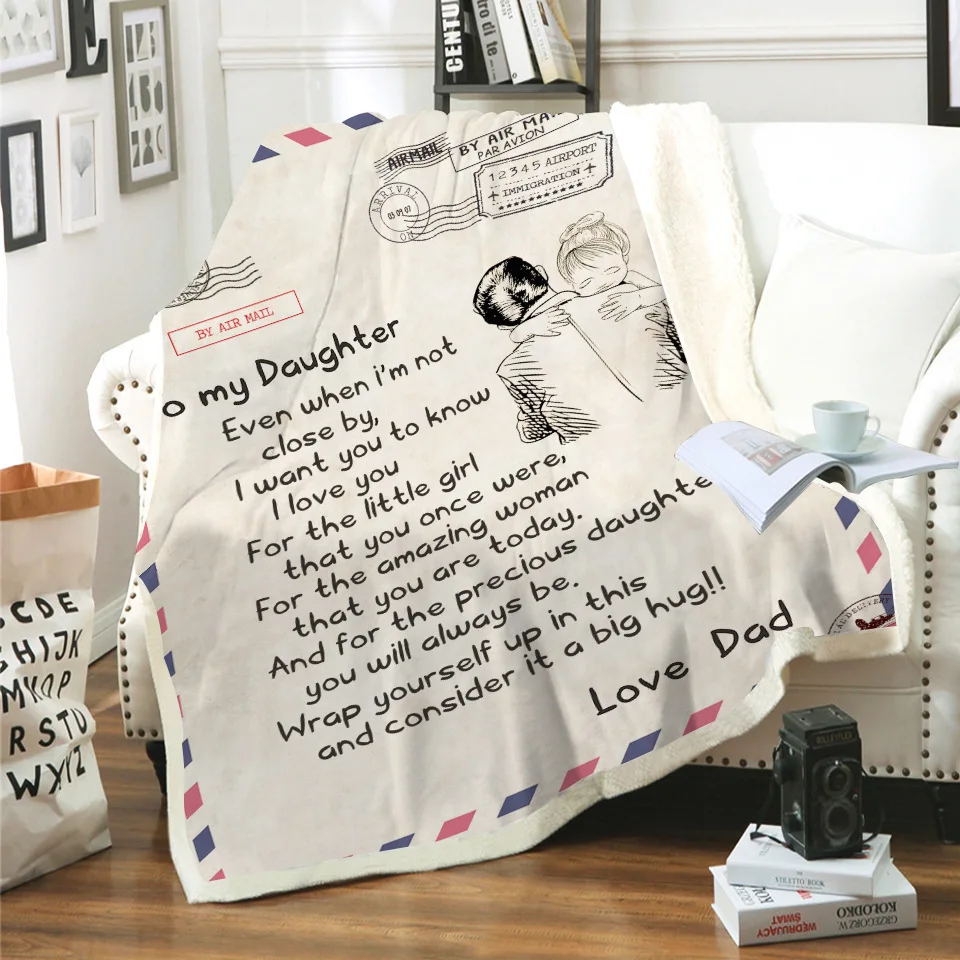 E
CENTU
AIRMAIL
BY AIR MA
PAR AVION
12345 AIRPORT
IMMIGRATION
ARRIVAL
BY AIR MAIL
o my Daughter
Even when i'm not
close by,
I want you to know
I love you
For the little girl
that you once were,
For the amazing woman
that you are today.
And for the precious daughte
you will always be.
Wrap yourself up in this
and consider it a big hug!!
Love Dad
CDE
GHIJK
MNOP
RSTU
WXYZ
STILETTO BOOK
WĘDRUJĄCY
ŚWIAT
GRZEGORZ.W.
KOŁODKO